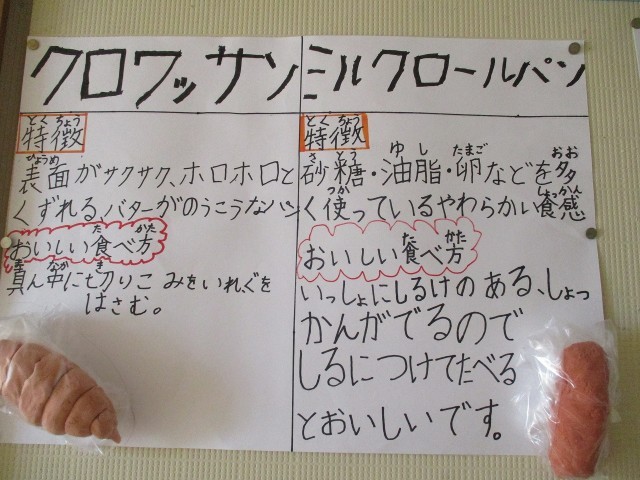 クロワッサン
特徴
とくちょう
表面がサクサク、ホロホロと
ひょうめん
くずれる、バターがのうこうなパン
おいしい食べ方
た かた
真ん中に切りこみをいれ、ぐを
ま なか き
はさむ。
ミルクロールパン
特徴
とくちょう
砂糖・油脂・卵などを多
さとう ゆし たまご おお
く使っているやわらかい食感
つか しょっかん
おいしい食べ方
た かた
いっしょにしるけのある、しょっ
かんがでるので
しるにつけてたべる
とおいしいです。